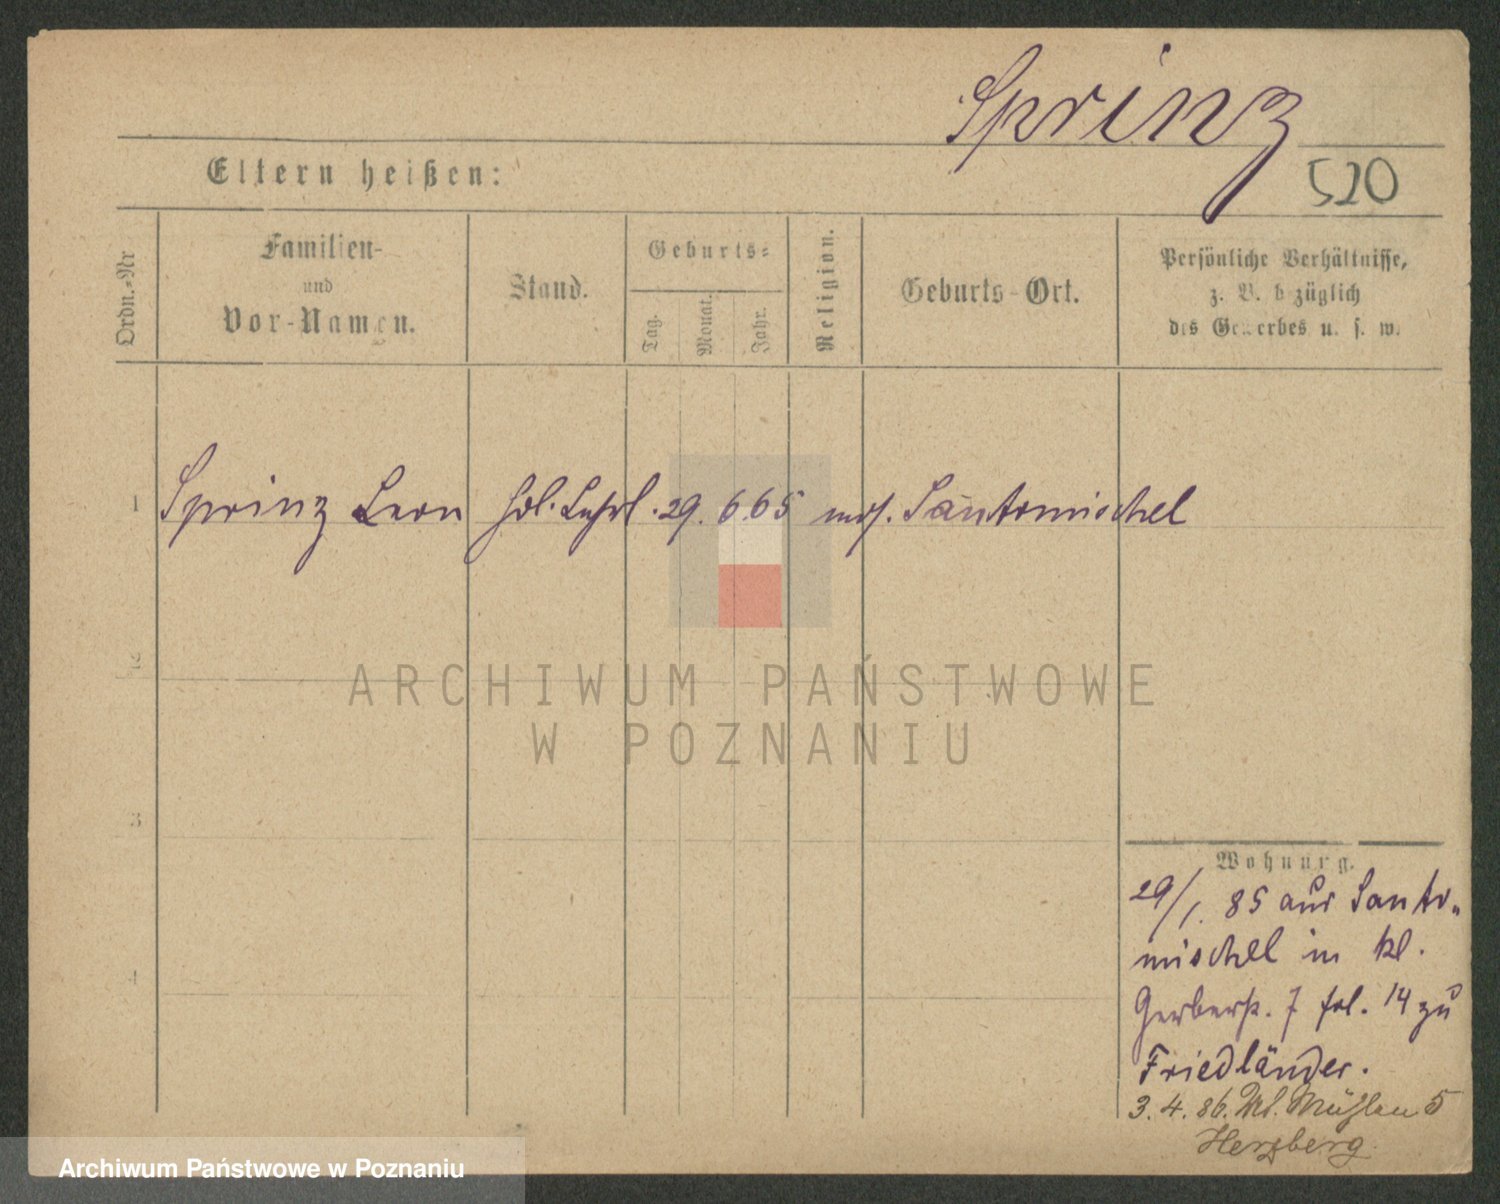 Sprinz
Eltern heißen:
520
Ordn.-Nr
Familien-
und
Vor-Namen.
Stand.
Geburts-
Tag.
Monat.
Jahr.
Religion.
Geburts-Ort.
Persönliche Verhältnisse,
z. B. bezüglich
des Gewerbes u. s. w.
1 Sprinz Leon Hdl. Lehrl. 29. 6. 65 mos. Santomischel
2
ARCHIWUM PAŃSTWOWE
W POZNANIU
3
Wohnung.
29/1. 85 aus Santo-
mischel in kl.
4
Gerberst. 7 fol. 14 zu
Friedländer.
3. 4. 86. Mühlen 5
Herzberg.
Archiwum Państwowe w Poznaniu